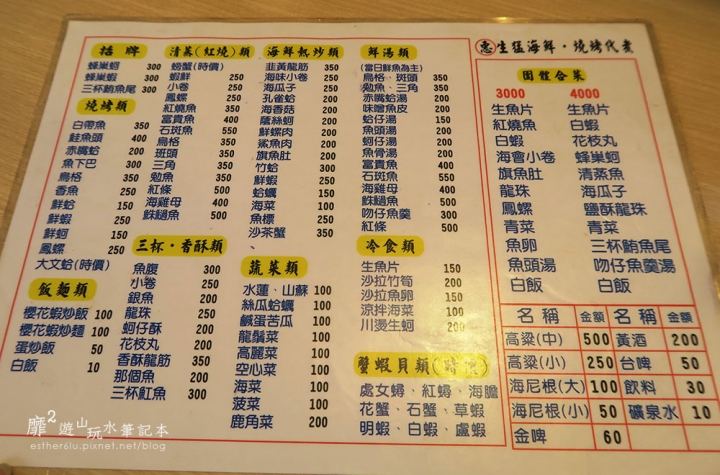 招牌
蜂巢蚵 300
蜂巢蝦 300
三杯鮪魚尾 300
燒烤類
白帶魚 350
鮭魚頭 400
赤嘴蛤 250
魚下巴 300
烏格 350
香魚 250
鮮蛤 150
鮮蝦 250
鮮蚵 150
鳳螺 250
大文蛤(時價)
飯麵類
櫻花蝦炒飯 100
櫻花蝦炒麵 100
蛋炒飯 50
白飯 10
清蒸(紅燒)類
螃蟹(時價)
蝦鮮 250
小卷 250
鳳螺 250
紅燒魚 350
富貴魚 400
石斑魚 550
烏格 350
斑頭 350
三角 350
魩魚 350
紅條 500
海雞母 400
鮢鯃魚 500
三杯‧香酥類
魚腹 300
小卷 250
銀魚 200
龍珠 250
蚵仔酥 200
花枝丸 200
香酥龍筋 350
那個魚 200
三杯魟魚 300
海鮮熱炒類
韭黃龍筋 350
海味小卷 250
海瓜子 250
孔雀蛤 200
海香菇 200
蔭絲蚵 200
鮮螺肉 200
鯊魚肉 200
旗魚肚 200
竹蛤 300
鮮蝦 250
蛤蠣 150
海菜 150
魚標 250
沙茶蟹 350
蔬菜類
水蓮、山蘇 100
絲瓜蛤蠣 100
鹹蛋苦瓜 100
龍鬚菜 100
高麗菜 100
空心菜 100
海菜 100
菠菜 100
鹿角菜 200
鮮湯類
(當日鮮魚為主)
烏格、斑頭 350
魩魚、三角 350
赤嘴蛤湯 200
味噌魚皮 200
蛤仔湯 150
魚頭湯 200
蚵仔湯 200
魚骨湯 200
富貴魚 400
石斑魚 550
海雞母 400
鮢鯃魚 500
吻仔魚羹 300
紅條 500
冷食類
生魚片 150
沙拉竹筍 200
沙拉魚卵 150
涼拌海菜 150
川燙生蚵 200
蟹蝦貝類(時價)
處女蟳、紅蟳、海膽
花蟹、石蟹、草蝦
明蝦、白蝦、盧蝦
生猛海鮮‧燒烤代煮
團體合菜
3000 4000
生魚片 生魚片
紅燒魚 白蝦
白蝦 花枝丸
海會小卷 蜂巢蚵
旗魚肚 清蒸魚
龍珠 海瓜子
鳳螺 鹽酥龍珠
青菜 青菜
魚卵 三杯鮪魚尾
魚頭湯 吻仔魚羹湯
白飯 白飯
名稱 金額 名稱 金額
高粱(中) 500 黃酒 200
高粱(小) 250 台啤 50
海尼根(大) 100 飲料 30
海尼根(小) 50 礦泉水 10
金啤 60
靡²遊山玩水筆記本
esther6lu.pixnet.net/blog